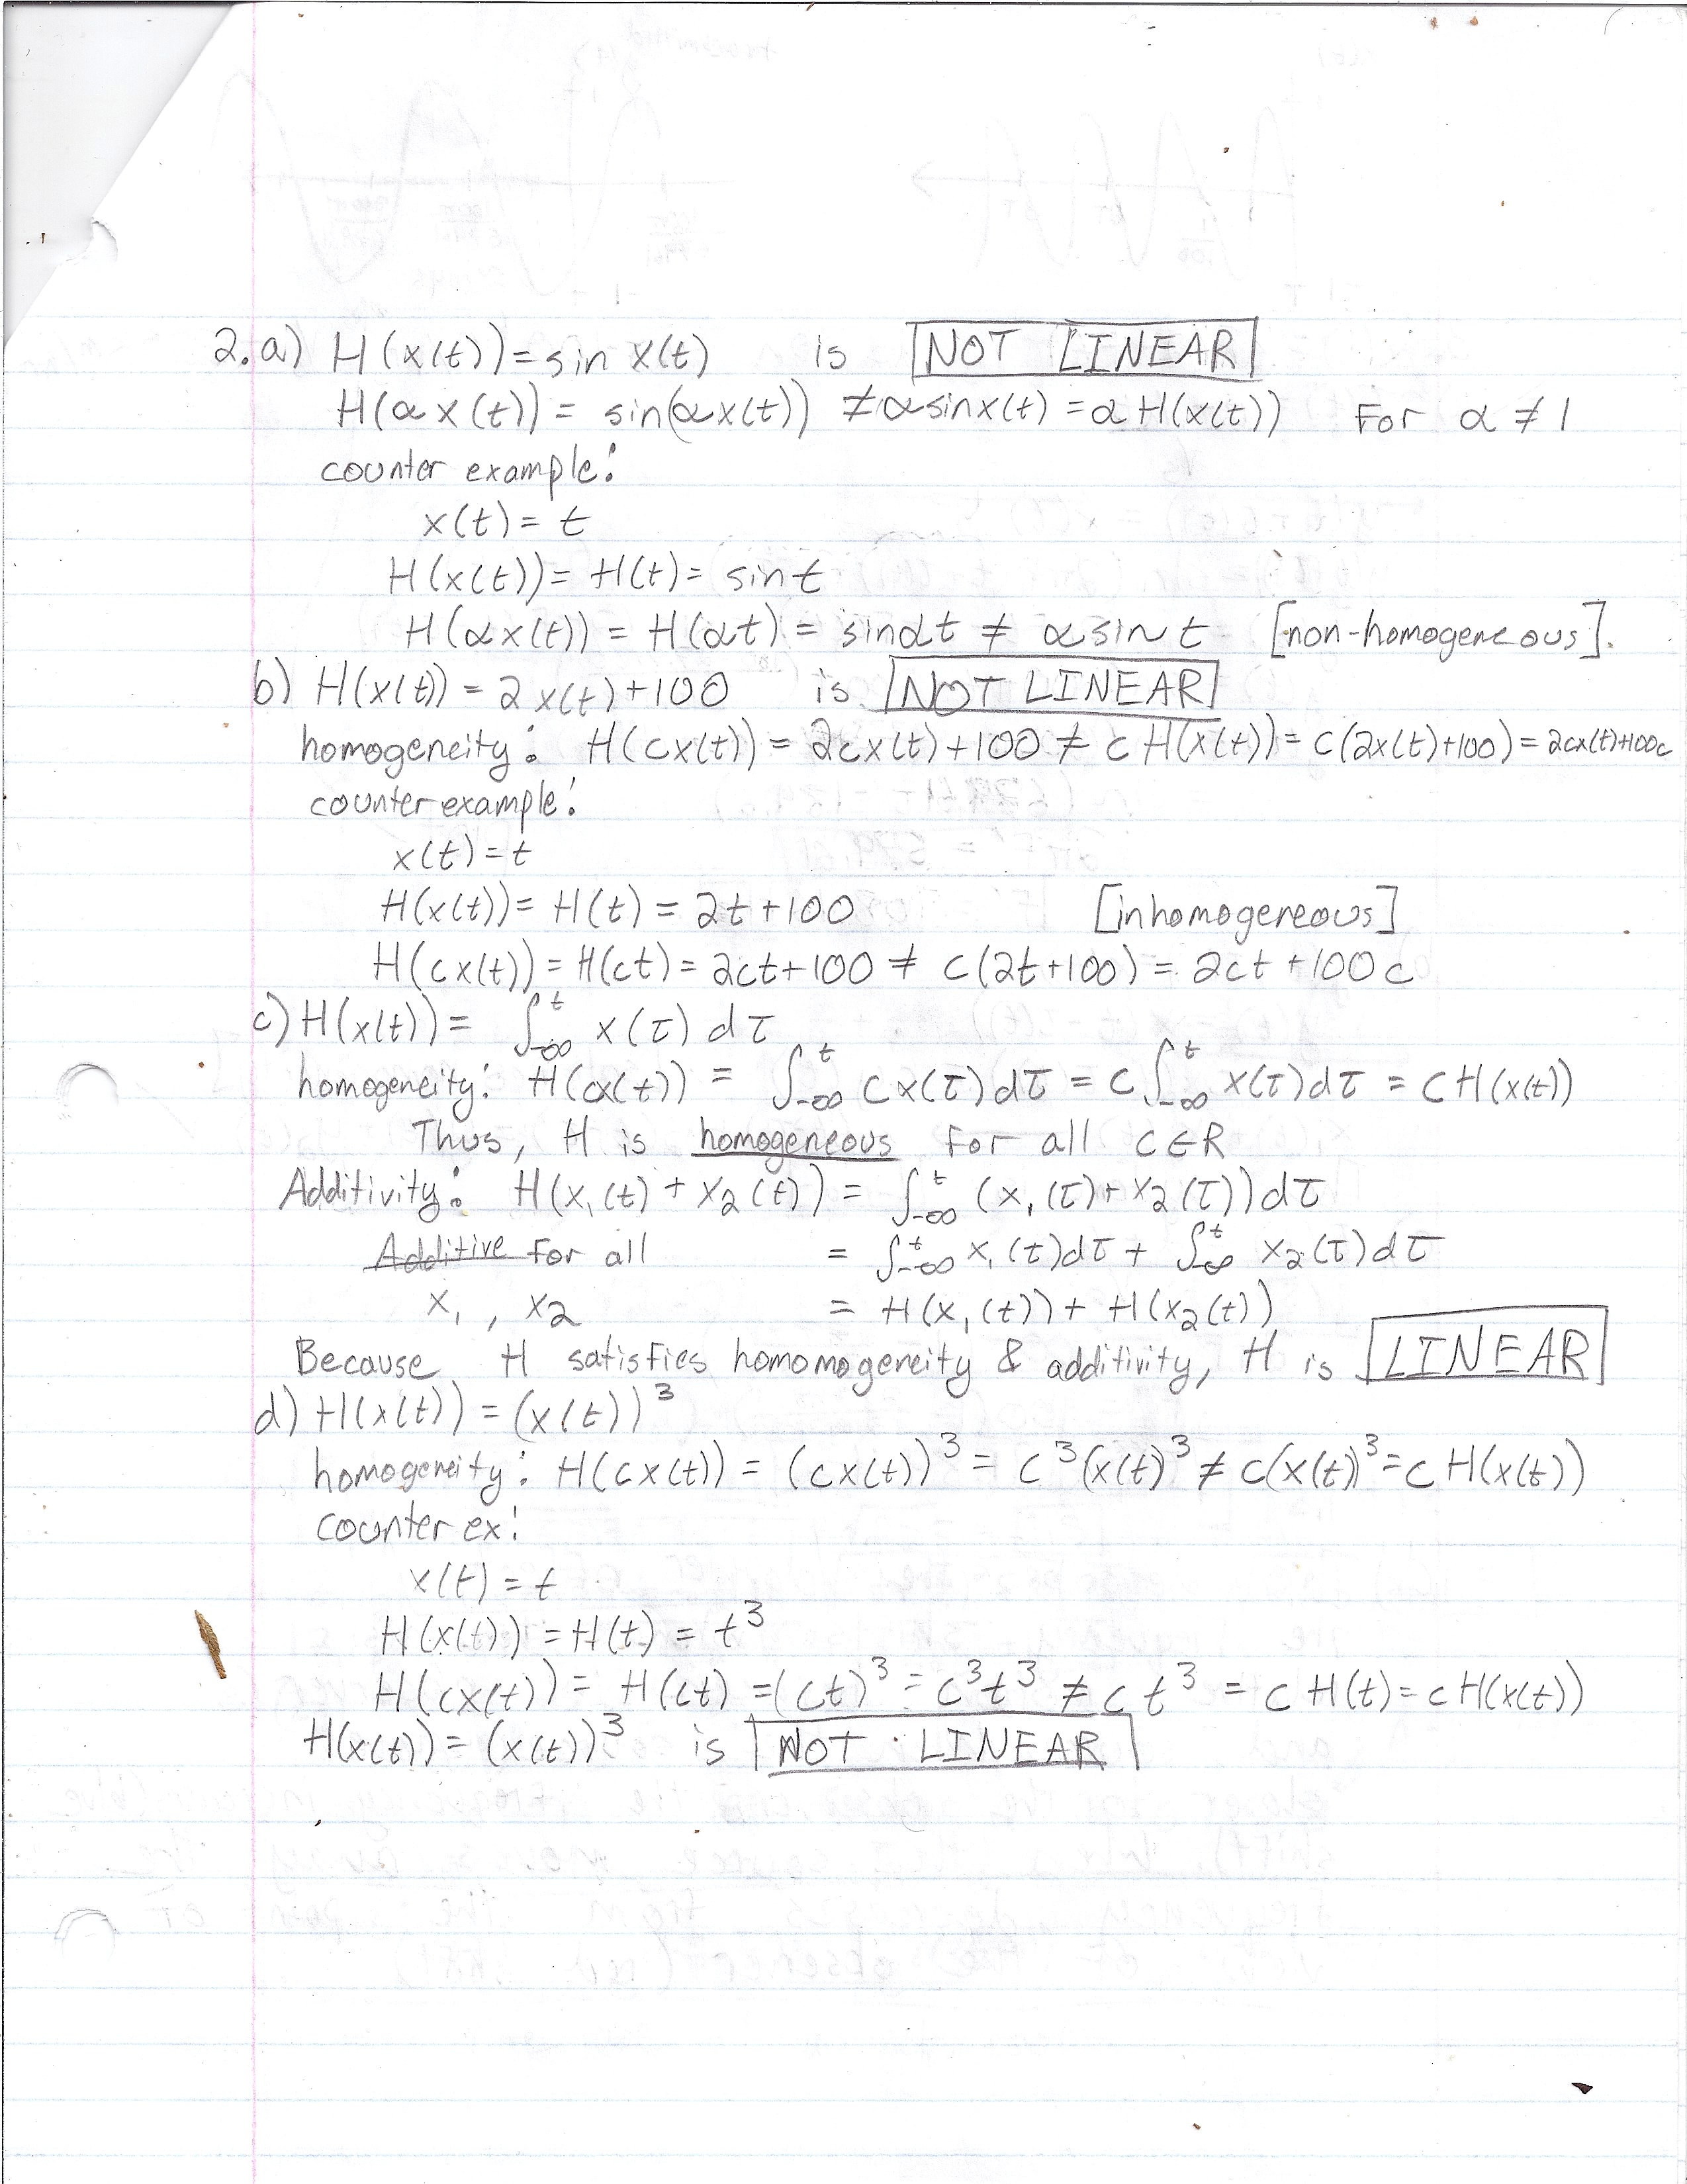 2. a) H(x(t)) = sin x(t) is NOT LINEAR
H(αx(t)) = sin(αx(t)) ≠ α sin x(t) = α H(x(t)) For α ≠ 1
counter example:
x(t) = t
H(x(t)) = H(t) = sin t
H(αx(t)) = H(αt) = sin αt ≠ α sin t [non-homogeneous].
b) H(x(t)) = 2x(t) + 100 is NOT LINEAR
homogeneity: H(cx(t)) = 2cx(t) + 100 ≠ c H(x(t)) = c(2x(t) + 100) = 2cx(t) + 100c
counterexample:
x(t) = t
H(x(t)) = H(t) = 2t + 100 [inhomogereous]
H(cx(t)) = H(ct) = 2ct + 100 ≠ c(2t + 100) = 2ct + 100c
c) H(x(t)) = ∫_{-∞}^{t} x(τ) dτ
homogeneity: H(cx(t)) = ∫_{-∞}^{t} cx(τ) dτ = c∫_{-∞}^{t} x(τ) dτ = c H(x(t))
Thus, H is homogeneous for all c ∈ R
Additivity: H(x₁(t) + x₂(t)) = ∫_{-∞}^{t} (x₁(τ) + x₂(τ)) dτ
Additive for all = ∫_{-∞}^{t} x₁(τ) dτ + ∫_{-∞}^{t} x₂(τ) dτ
x₁, x₂ = H(x₁(t)) + H(x₂(t))
Because H satisfies homomogeneity & additivity, H is LINEAR
d) H(x(t)) = (x(t))³
homogeneity: H(cx(t)) = (cx(t))³ = c³(x(t)³ ≠ c(x(t))³ = c H(x(t))
counter ex:
x(t) = t
H(x(t)) = H(t) = t³
H(cx(t)) = H(ct) = (ct)³ = c³t³ ≠ c t³ = c H(t) = c H(x(t))
H(x(t)) = (x(t))³ is NOT LINEAR